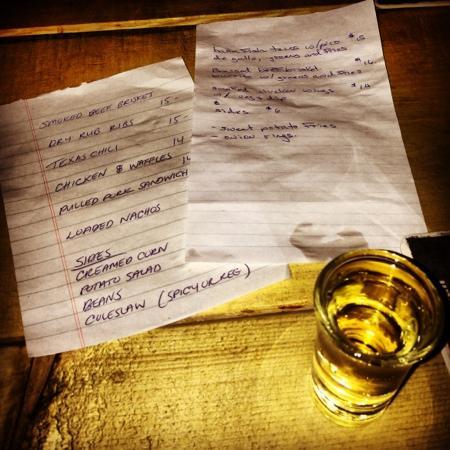 SMOKED BEEF BRISKET 15-
DRY RUB RIBS 15
TEXAS CHILI
CHICKEN & WAFFLES 14
PULLED PORK SANDWICH 14
LOADED NACHOS
SIDES
CREAMED CORN
POTATO SALAD
BEANS
COLESLAW (SPICY OR REG)
tacos w/pico $15
de gallo, greens and
$16
w/greens and
smoked chicken wings $14
sides $6
- sweet potato fries
- onion rings.